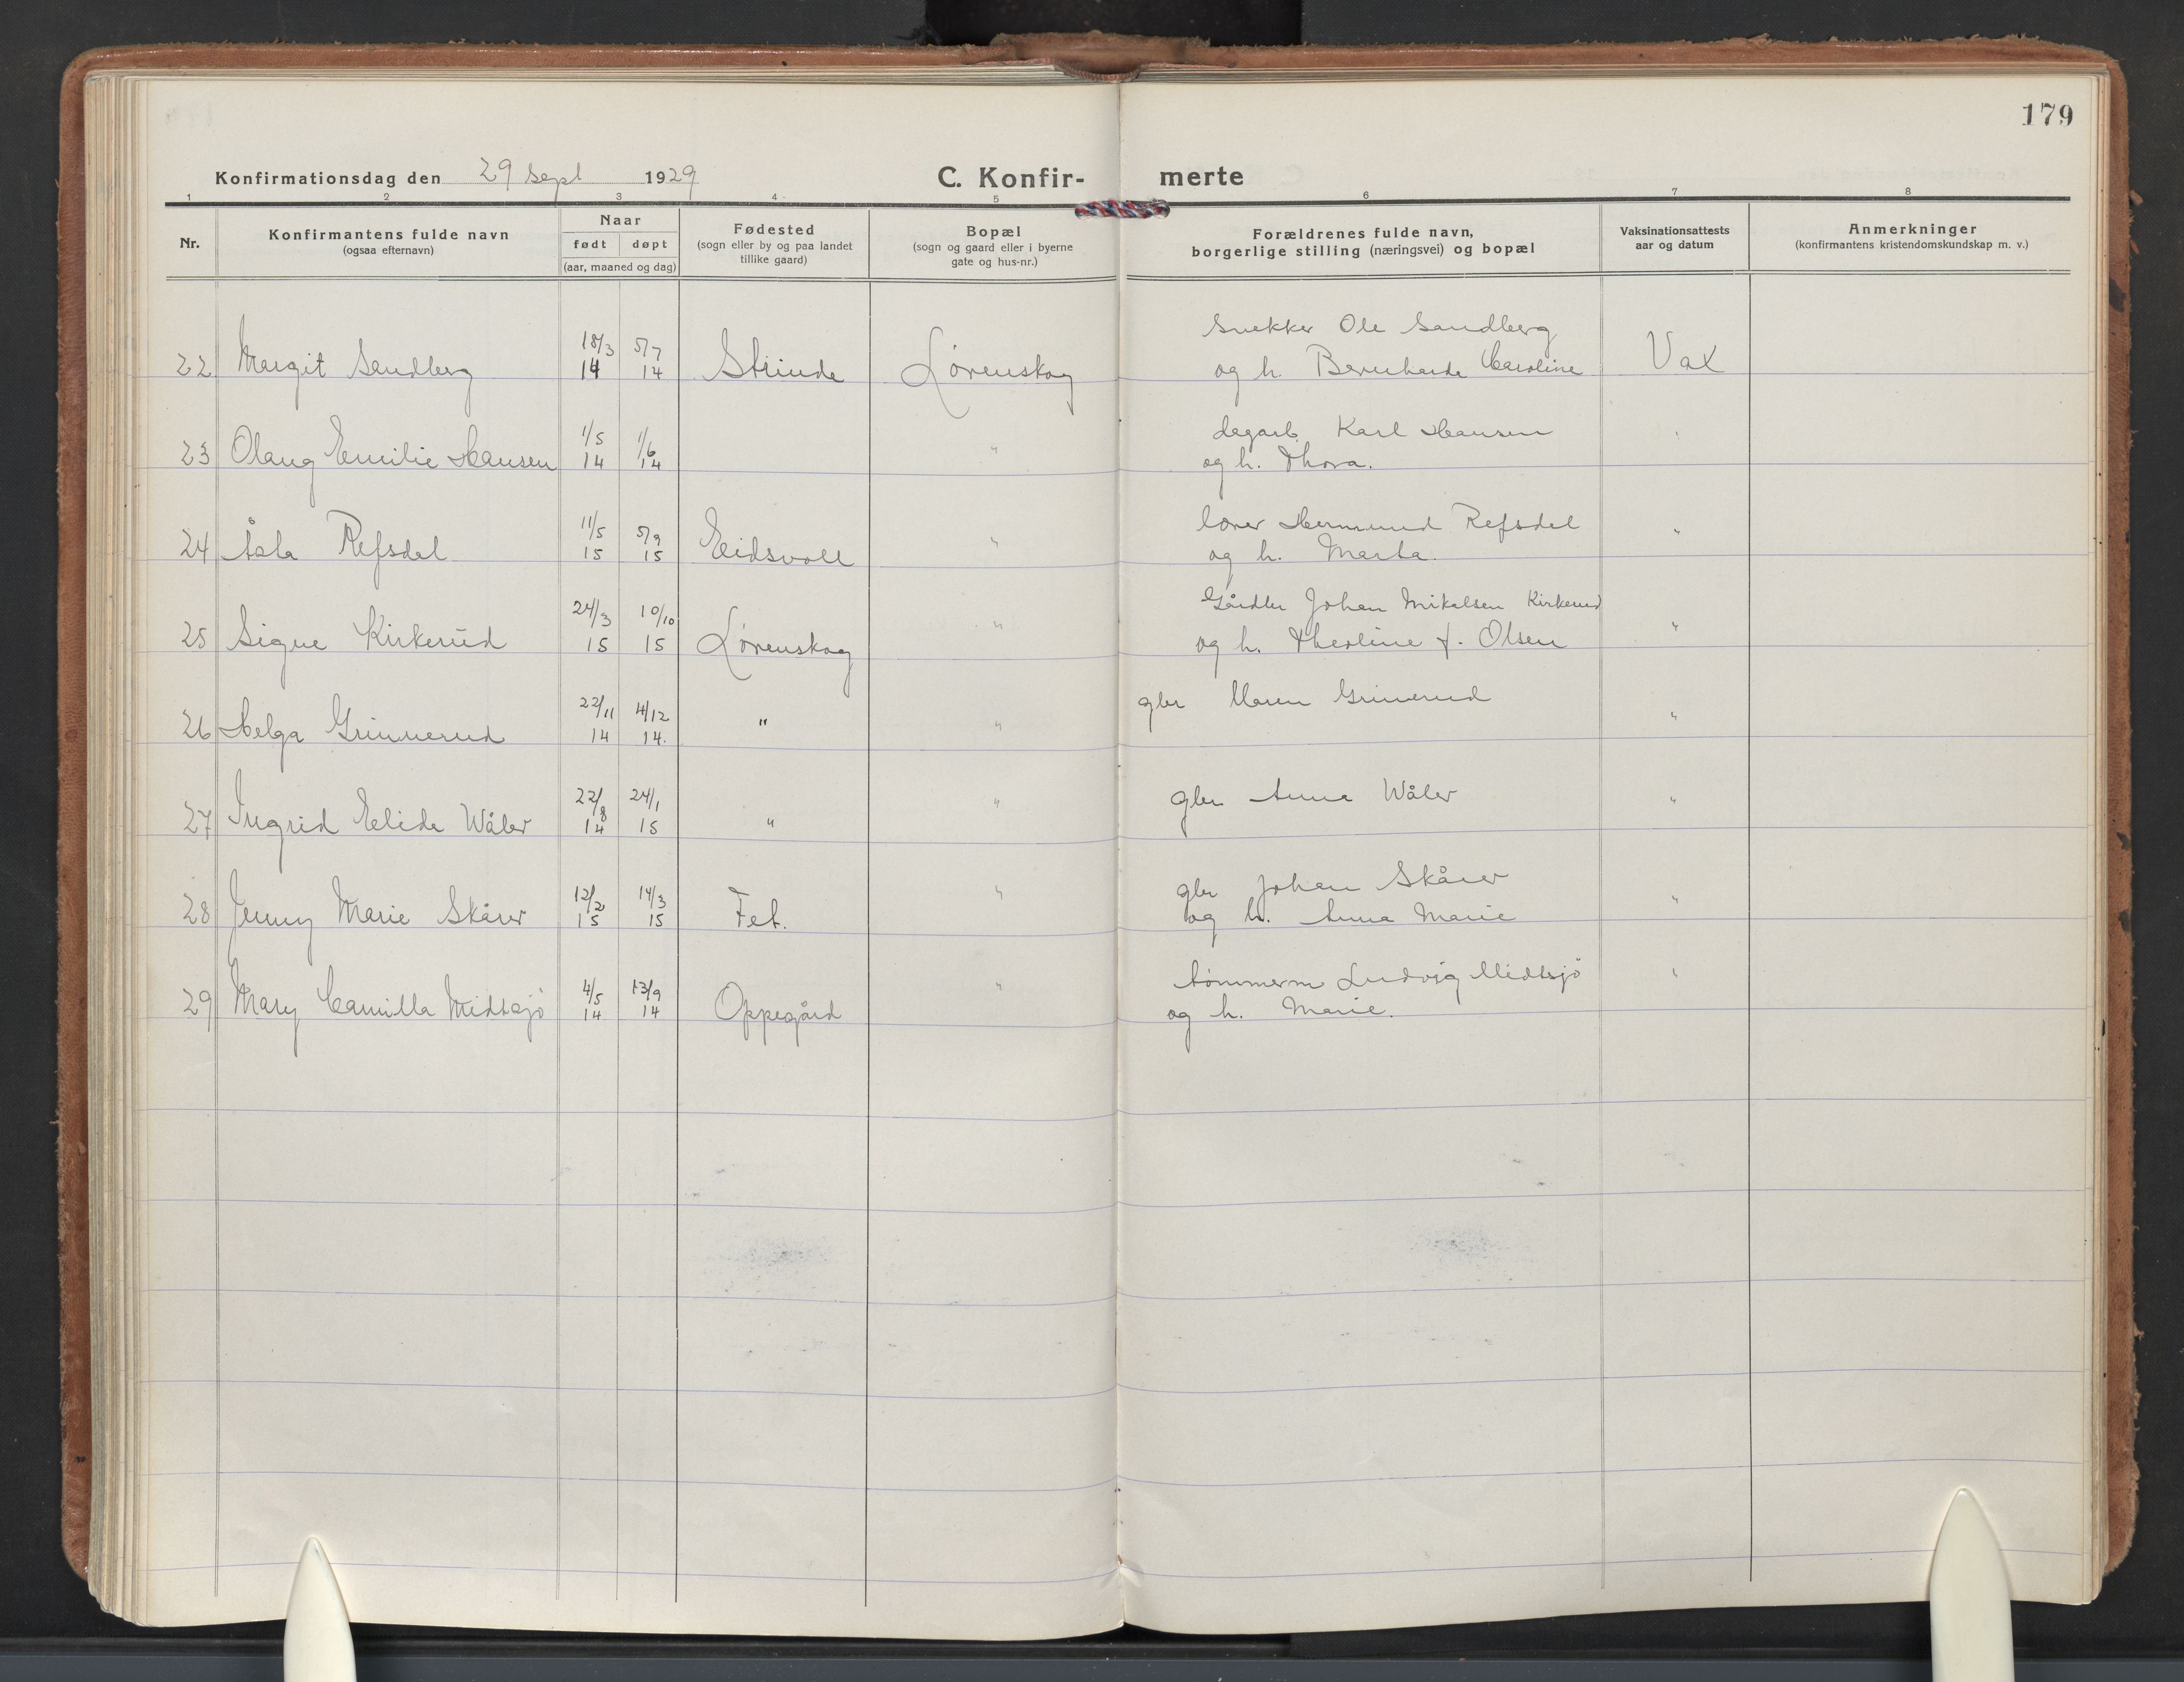 179
Konfirmationsdag den 29 Sept 1929
C. Konfir- merte
1 2 3 4 5 6 7 8
Nr.
Konfirmantens fulde navn
(ogsaa efternavn)
Naar
født døpt
(aar, maaned og dag)
Fødested
(sogn eller by og paa landet
tillike gaard)
Bopæl
(sogn og gaard eller i byerne
gate og hus-nr.)
Forældrenes fulde navn,
borgerlige stilling (næringsvei) og bopæl
Vaksinationsattests
aar og datum
Anmerkninger
(konfirmantens kristendomskundskap m. v.)
18/3 5/7 Snekker Ole Sandberg
22 Margit Sandberg 14 14 Strinde Lørenskog og h. Bernharde Caroline Vax
1/5 1/6 dagarb. Karl Hansen
23 Olaug Emilie Hansen 14 14 " og h. Thora. "
11/5 5/9 lærer Hermund Refsdal
24 Åsla Refsdal 15 15 Eidsvoll " og h. Marta. "
24/3 10/10 Gårdbr Johan Mikalsen Kirkerud
25 Signe Kirkerud 15 15 Lørenskog " og h. Theoline f. Olsen "
22/11 4/12 gbr Maren Grinerud
26 Helga Grinnerud 14 14. " " "
22/8 24/1 gbr Anna Wåler
27 Ingrid Elida Wåler 14 15 " " "
12/2 14/3 gbr Johan Skårer
28 Jenny Marie Skårer 15 15 Fet. " og h. Anna Marie "
4/5 13/9 tømmerm Ludvig Midtsjö
29 Mary Camilla Midtsjö 14 14 Oppegård " og h. Marie. "